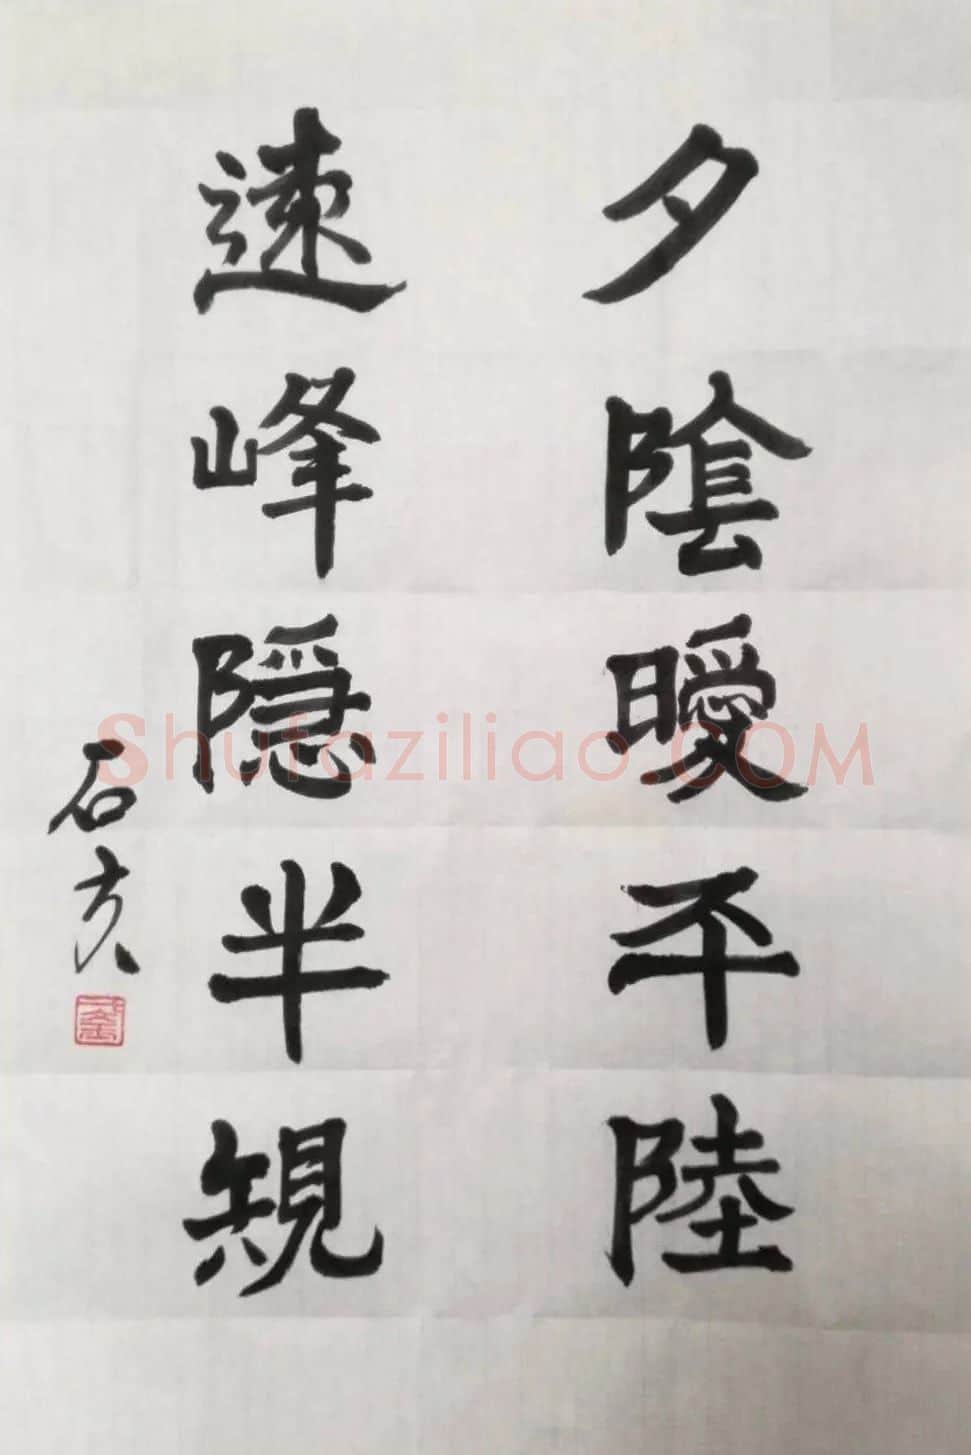 夕陰曖平陸
遠峰隱半䂓
石
Shufaziliao.COM